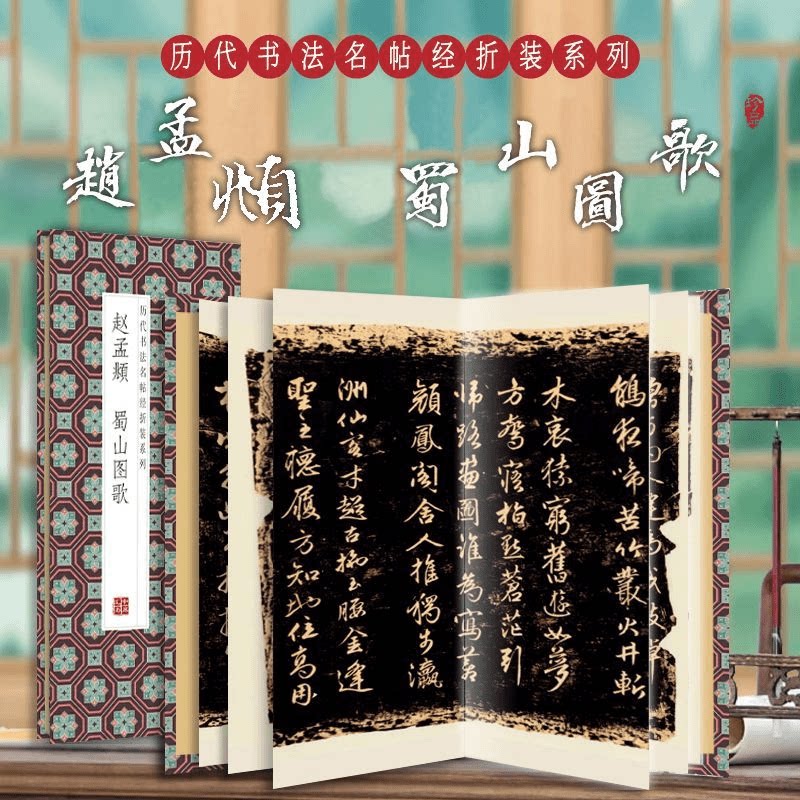 历代书法名帖经折装系列
趙孟頫 蜀山圖歌
历代书法名帖经折装系列
赵孟頫 蜀山图歌
啼苦竹叢火井斬
木哀猿窮舊遊如夢
方驚寤指點蒼茫引
歸路畫圖誰為寫蒼
顏鳳閣舍人推獨步瀛
洲仙客才超古玉腰金逢
聖主履方知地位高用